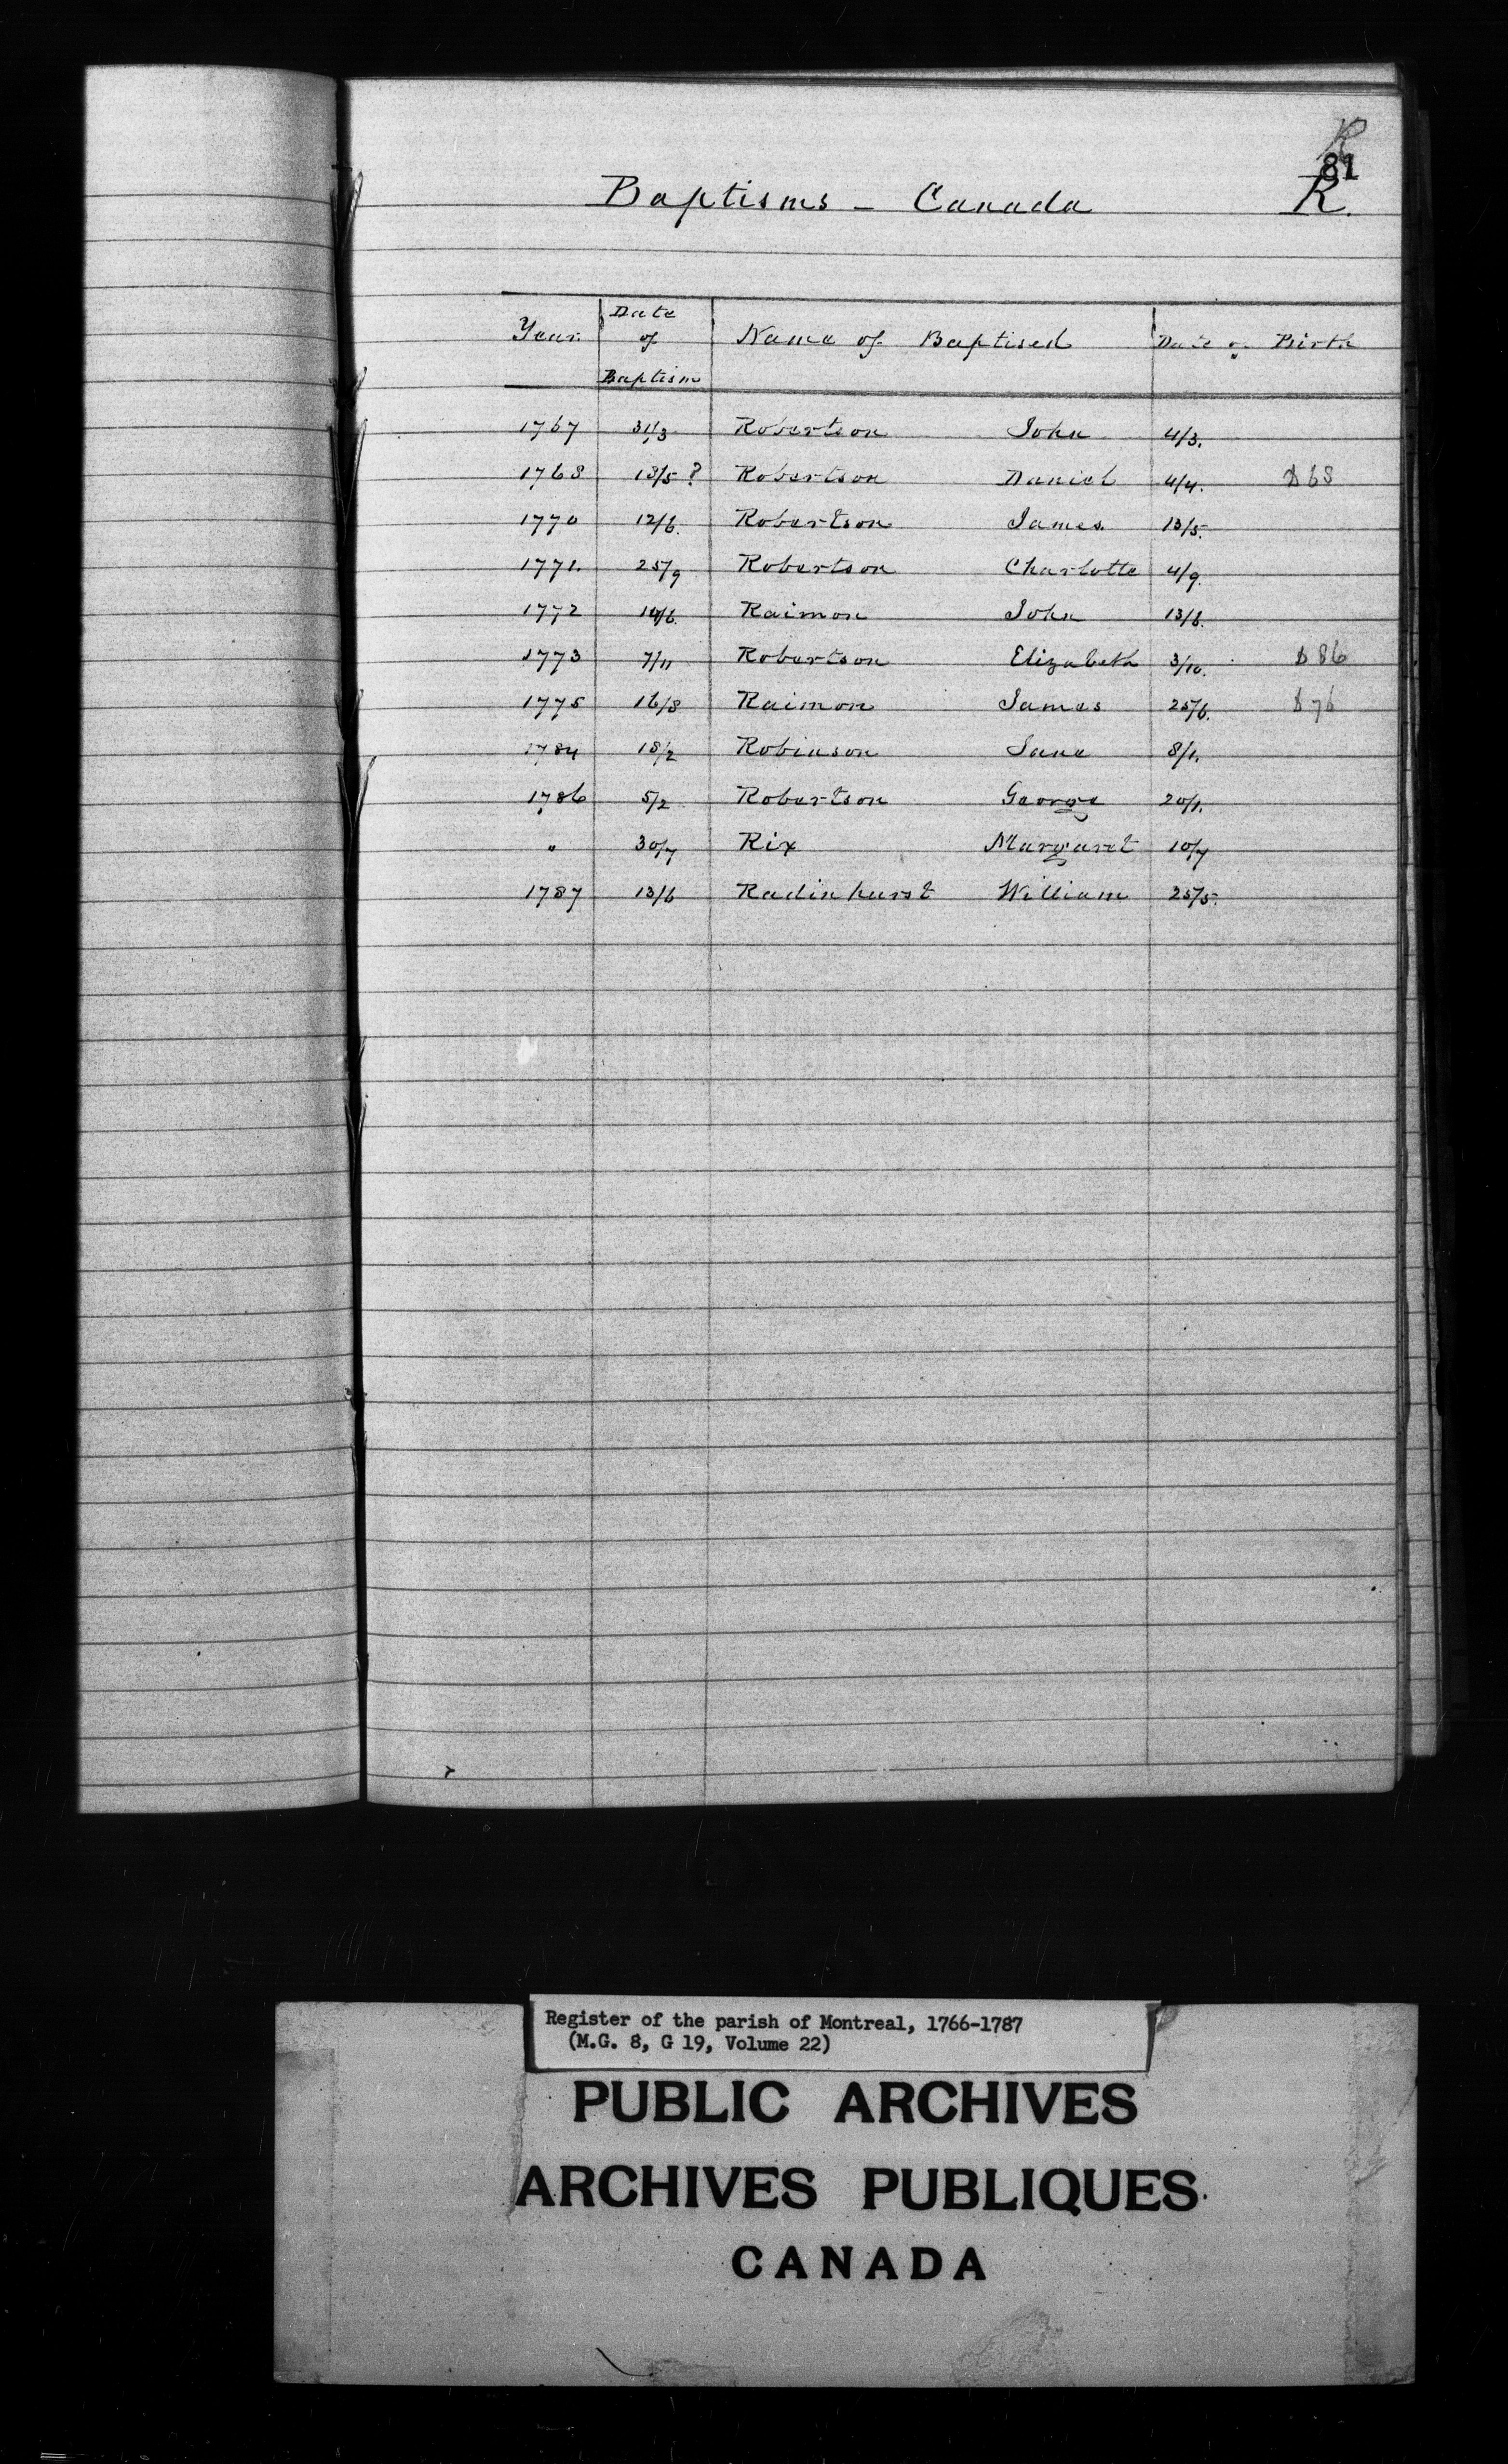 R
81
Baptisms - Canada R.
Year Date of Baptism Name of Baptised Date of Birth
1767 31/3 Robertson John 4/3.
1768 13/5 ? Robertson Daniel 4/4. D 68
1770 12/6. Robertson James 13/5.
1771. 25/9 Robertson Charlotte 4/9.
1772 14/6. Raimon John 13/6.
1773 7/11 Robertson Elizabeth 3/10. D 86
1775 16/8 Raimon James 25/6. D 76
1784 18/2 Robinson Jane 8/1.
1786 5/2 Robertson George 20/1.
" 30/7 Rix Margaret 10/7
1787 13/6 Radinhurst William 25/5.
Register of the parish of Montreal, 1766-1787
(M.G. 8, G 19, Volume 22)
PUBLIC ARCHIVES
ARCHIVES PUBLIQUES
CANADA